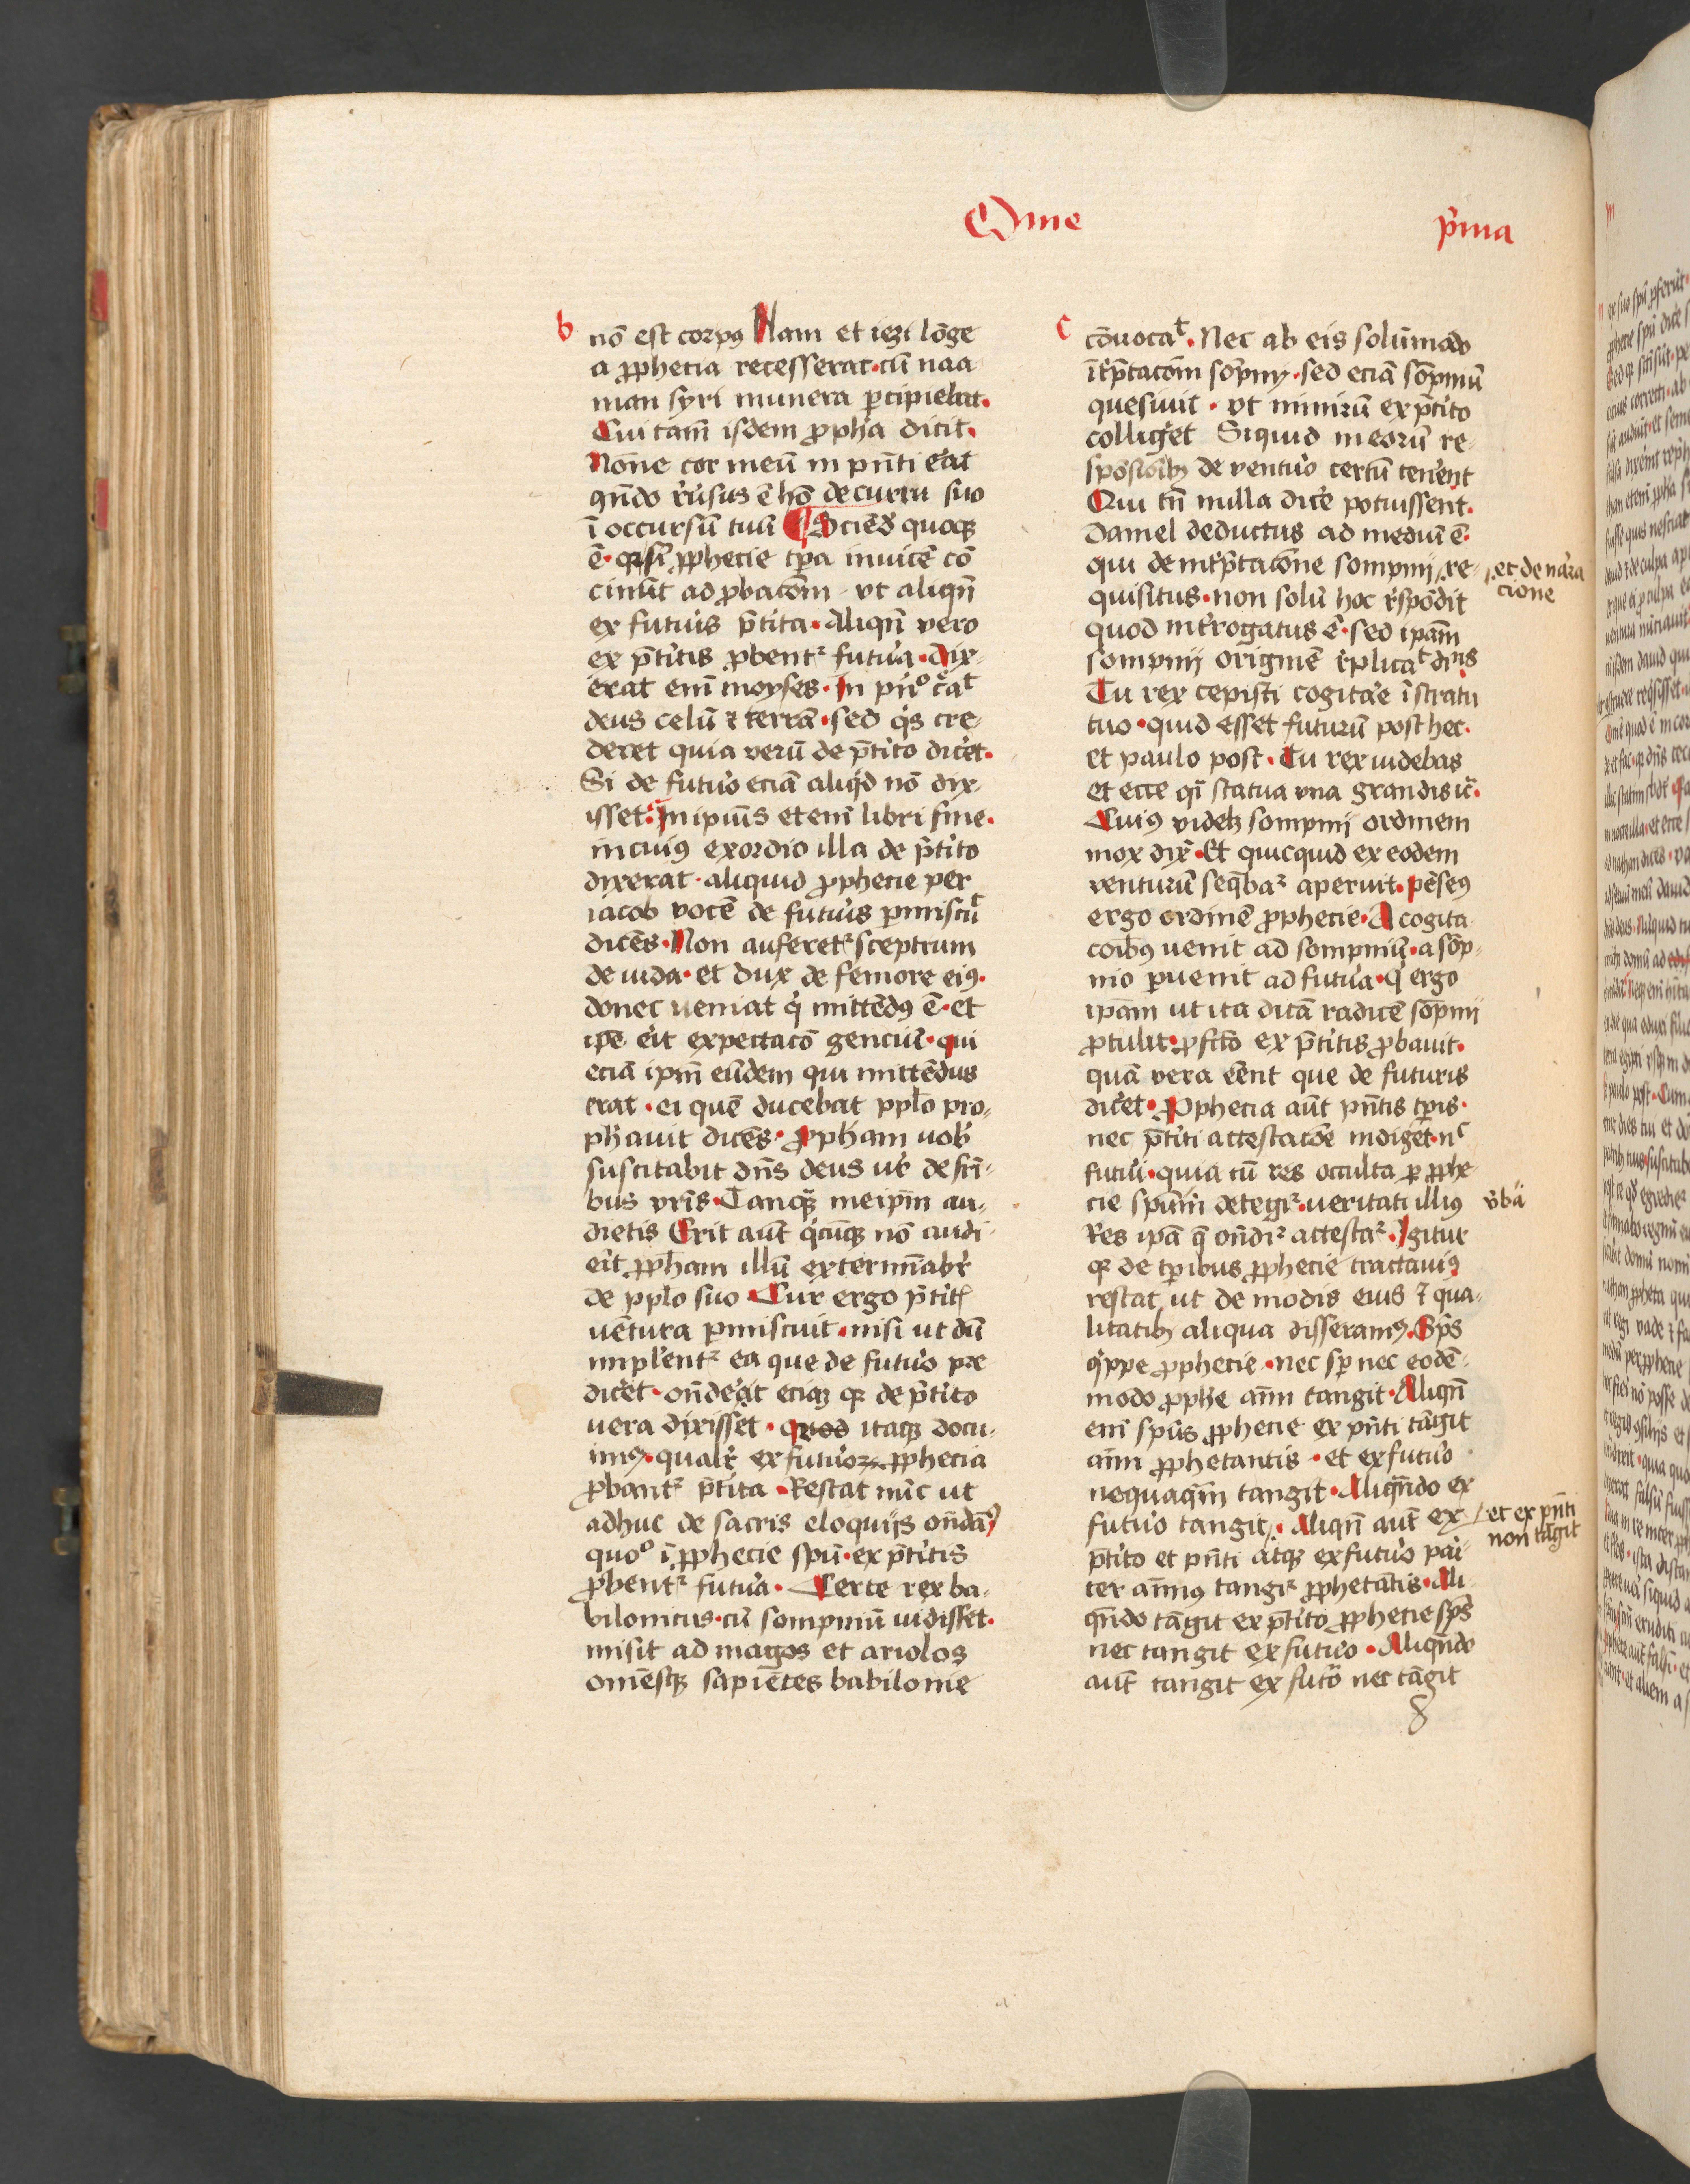 Omẽ
p̾ma
b
nō est corpꝰ Nam et iezi lōge
a ꝓphetia recesserat · cū naa
man syri munera ꝑcipiebat ·
Cui tam̄ isdem ꝓph̄a dicit ·
Nōne cor meū in pn̄ti erat
qn̄do r̾usus ē hō de curru suo
ī occursū tuū ¶ Sciēd̾ quoqꝫ
ē · ꝙ si ꝓphecie tp̄a inuicē cō
cinūt ad ꝓbacōm · vt aliqn̄
ex fut̾is p̄tita · Aliqn̄ vero
ex p̄titis ꝓbentᷣ futu̾a · Dix-
erat eni̅ moyses · In pn̾° c̾at
deus celū ⁊ terrā · sed q̾s cre-
deret quia verū de p̄tito dic̾et ·
Si de futu̾o eciā aliq̾d nō dix-
isset · In ipiu̅s eteni̅ libri fine ·
in cuiꝰ exordio illa de p̄tito
dixerat · aliquid ꝓphecie per
iacob vocē de futu̾is ꝑmiscut
dicēs · Non auferetᷣ sceptrum
de iuda · et dux de femore eiꝰ ·
donec ueniat q̾ mittēdꝰ ē · et
ip̄e eit expectacō genciū · qui
eciā ipm̄ eūdem qui mittēdus
erat · ei quē ducebat ppl̄o pro-
ph̾auit dicēs · Ꝓph̄am uob̾
suscitabit dn̄s deus ur̾ de fri̅-
bus vri̅s · Tanqꝫ meipm̄ au-
dietis Erit aut̄ q̾cūqꝫ nō audi-
eit ꝓph̄am illū extermi̅abr̾
de ppl̄o suo · Cur ergo p̄titꝭ
uētura ꝑmiscuit · nisi ut dū
impler̾entᷣ ea que de futu̾o pre
dic̾et · on̄der̾et eciaꝫ ꝙ de p̄tito
uera dixisset · quod itaqꝫ docu-
imꝰ · qualr̾ ex futuroꝝ ꝓphecia
ꝓbantᷣ p̄tita · Restat nūc ut
adhuc de sacris eloquijs on̄damꝰ
quo° ī ꝓphecie spū · ex p̄titis
ꝓbentᷣ futu̾a · Certe rex ba-
bilonicus · cū sompniū uidisset ·
misit ad magos et ariolos
omēsqꝫ sapiētes babilonie
c
cōuocat · Nec ab eis solūmodo
īr̾p̄tacōm sōpnij · sed eciā sōpniū
quesiuit · vt nimirū ex p̄tito
collig̾et Si quid in eoru̅ re-
spōsioībꝫ de ventu̾o certū ten̾ent
Qui tn̄ nulla dic̾e potuissent ·
Daniel deductus ad mediū ē ·
qui de int̾p̄tacōne sompnij re-
et de nar̾a
cione
quisitus · non solū hoc r̾spōdit
quod int̾rogatus ē · sed ipam̄
sompnij originē r̾plicat dn̄s
Tu rex cepisti cogita̾e ī stratu
tuo · quid esset futurū post hec ·
et paulo post · Tu rex uidebas
et ecce q̅i statua vna grandis ic̾ ·
Cuiꝰ videlꝫ sompnij ordinem
mox dix̾ · Et quicquid ex eodem
venturū seq̄baᷣ aperuit · Pēseꝰ
ergo ordinē ꝓphecie · A cogita
coi̅bꝰ uenit ad sompniū · a sōp-
nio ꝑuenit ad futu̾a · q̾ ergo
ipam̄ ut ita dicā radicē sōpnij
ꝓtulit · ꝓfc̄to ex p̄titis ꝓbauit ·
quā vera eēnt que de futuris
dic̾et · Ꝓphecia aut̄ pn̄tis tp̄is ·
nec p̄titi attestacōe indiget · nᶜ
futu̾i · quia cū res occulta ꝑ ꝓphe-
cie spūm detegiᷣ · ueritati illiꝰ
v̾ba
Res ipā q̄ on̄diᷣ attestaᷣ · Igitur
ꝙ de tꝑibus ꝓphecie tractauiꝰ
restat ut de modis eius ⁊ qua-
litatibꝫ aliqua disseramꝰ · Sp̄s
q̾ppe ꝓphecie · nec sꝑ nec eodē-
modo ꝓphe ai̅m tangit · Aliqn̄
eni̅ spūs ꝓphecie ex pn̄ti tāgit
ai̅m ꝓphetantis · et ex futu̾o
nequaqm̄ tangit · Aliqn̄do ex
futu̾o tangit · Aliqn̄ aut̄ ex
et ex pn̄ti
non tāgit
p̄tito et pn̄ti atqꝫ ex futu̾o pai̾-
ter ai̅mus tangiᷣ ꝓphetātis · Ali
qn̄do tāgit ex p̄tito ꝓphecie sp̄s
nec tangit ex futuro · Aliqn̄do
aut̄ tangit ex futo̾ nec tāgit